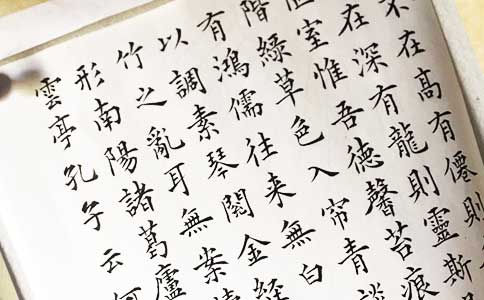 不在高有僊則
在深有龍則靈斯
室惟吾德馨苔痕
階綠草色入帘青談
有鴻儒往來無白
以調素琴閱金經
竹之亂耳無案
形南陽諸葛廬
雲亭孔子云何